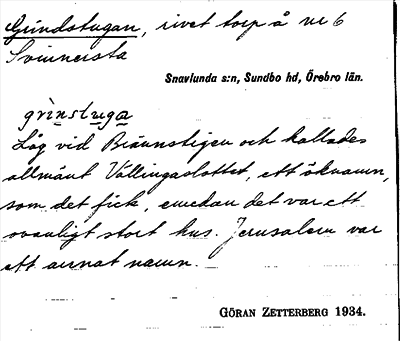 Grindstugan, rivet torp å nr 6
Svinnersta
Snavlunda s:n, Sundbo hd, Örebro län.
grinstuga
Låg vid Brännstigen och kallades
allmänt Vällingaslottet, ett öknamn,
som det fick, emedan det var ett
ovanligt stort hus. Jerusalem var
ett annat namn.
GÖRAN ZETTERBERG 1934.